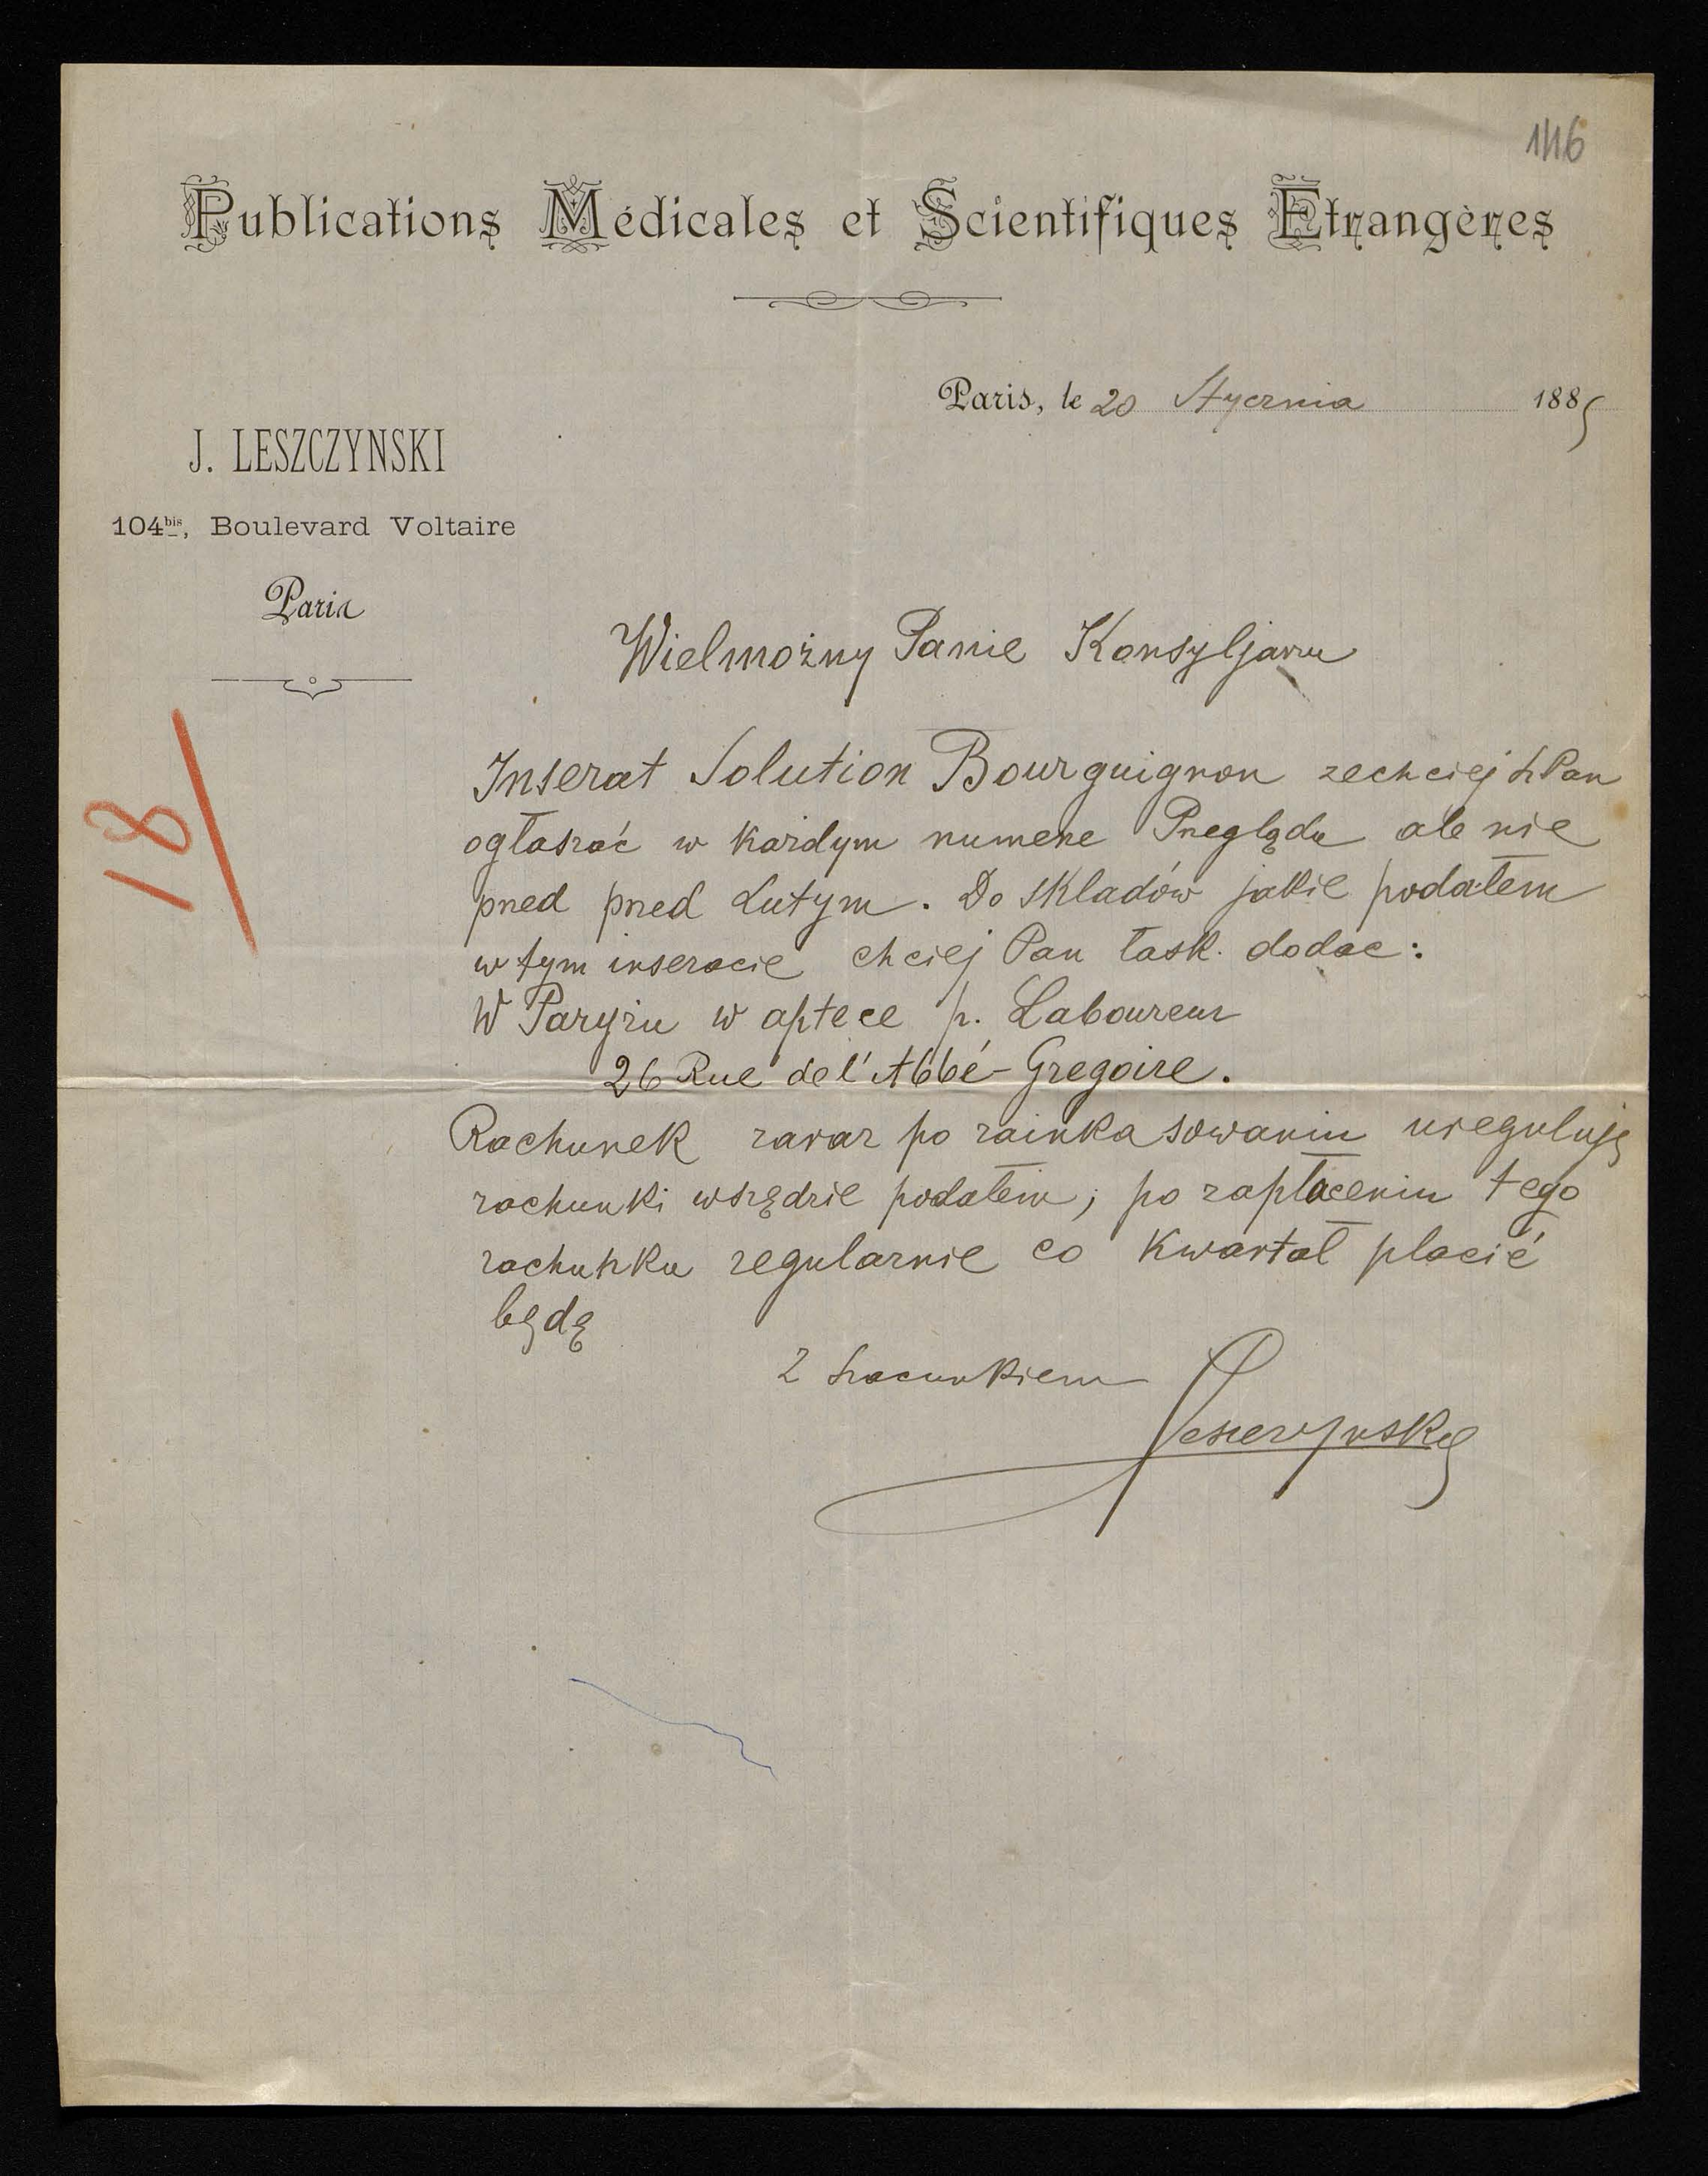 146
Publications Médicales et Scientifiques Etrangères
Paris, le 20 Stycznia 1885
J. LESZCZYNSKI
104bis, Boulevard Voltaire
Paris
18/
Wielmożny Panie Konsyljarzu
Inserat Solution Bourguignon zechciej Sz Pan
ogłaszać w każdym numerze Przeglądu ale nie
przed przed Lutym. Do składów jakie podałem
w tym inseracie chciej Pan łask. dodac:
W Paryżu w aptece p. Laboureur
26 Rue de l'Abbé-Gregoire.
Rachunek zaraz po zainkasowaniu ureguluję
rachunki wszędzie podałem; po zapłaceniu tego
rachunku regularnie co Kwartał placić
będę
Z szacunkiem
Leszczynski